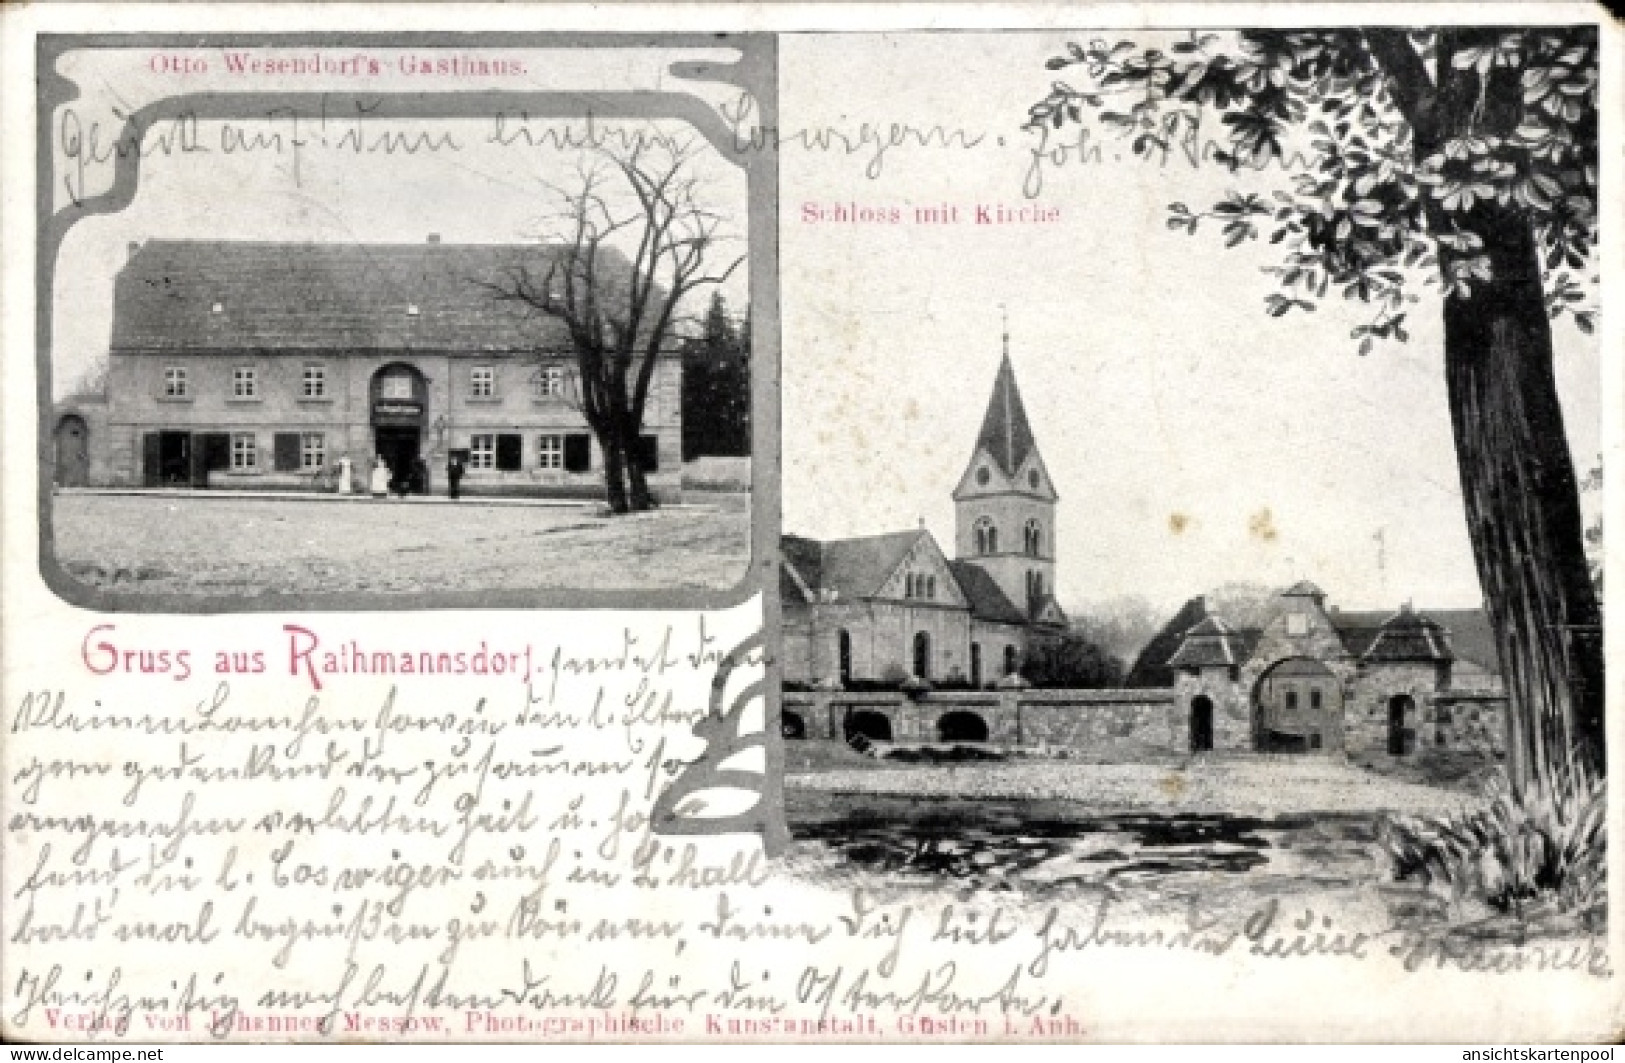 Otto Wesendorf's Gasthaus.
Glück auf! den lieben Coswigern. Joh.
Schloss mit Kirche
Gruss aus Rathmannsdorf.
sendet dem
kleinen sowie den l. Eltern
gern gedenkend der zusammen so
angenehm verlebten Zeit u. hof
fend, die l. Coswiger auch in L'hall
bald mal begrüßen zu können, deine Dich lieb habende Luise Brauner.
Gleichzeitig noch besten Dank für die Osterkarte.
Verlag von Johannes Messow, Photographische Kunstanstalt, Güsten i. Anh.
www.delcampe.net
ansichtskartenpool